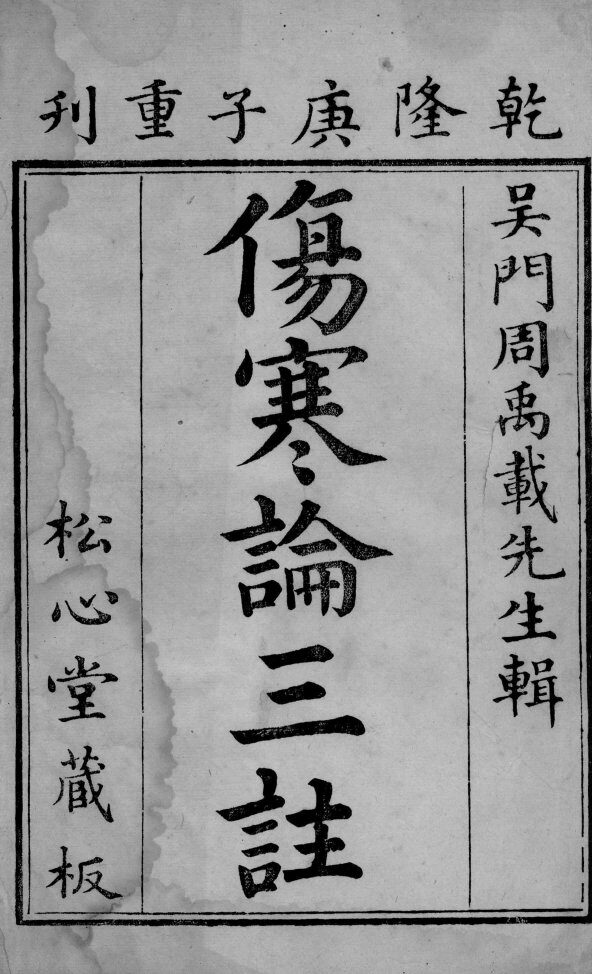 乾隆庚子重刊
吴門周禹載先生輯
傷寒論三註
松心堂蔵板